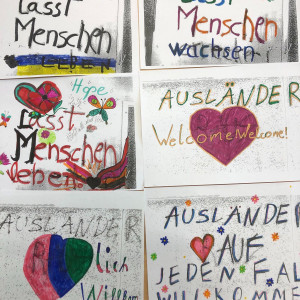 Lasst
Menschen
Leben
Lasst
Menschen
wachsen
Hope
Lasst
Menschen
leben
AUSLÄNDER
Welcome Welcome!
AUSLÄNDER
lich
Willkomm
AUSLÄNDER
AUF
JEDEN FAL
WILLKOMME